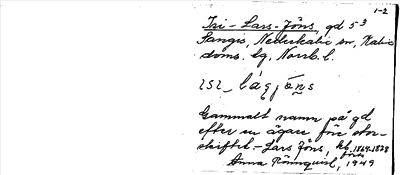 1-2
Isi - Lars-Jöns, gd 5³
Sangis, Nederkalix sn, Kalix
doms. lg, Norrb. l.
Gammalt namn på gd
efter en ägare före stor-
skiftet. - Lars Jöns, kb. 1869-1878
Anna Rönnqvist, 1949